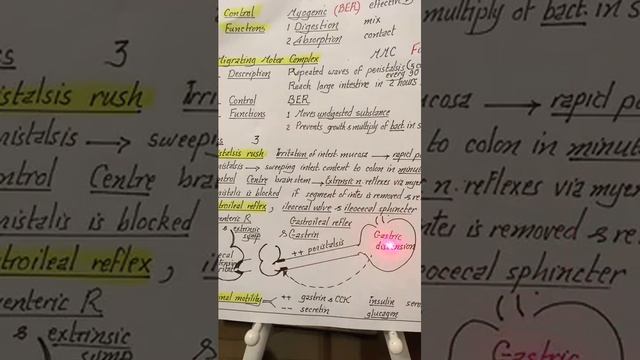 Control Myogenic (BER) effectin
Functions 1 Digestion mix
2 Absorption contact
Migrating Motor Complex MMC
Description Repeated waves of peristalsis
every 90
Reach large intestine in 2 hours
Control BER
Functions 1 Moves undigested substance
2 Prevents growth & multiply of bact. in s
3
stalsis rush Irritation of intest. mucosa → rapid p
ristalsis → sweeping intest. content to colon in minut
ntrol Centre brain stem → Extrinsic n. reflexes via myen
ristals is blocked if segment of intes is removed & re
stroileal reflex, ileocecal valve & ileocecal sphincter
enteric R Gastroileal reflex
& extrinsic & Gastrin
symp
++ peristalsis
Gastric
distension
inal motility ++ gastrin & CCK insulin sero
-- secretin glucagon